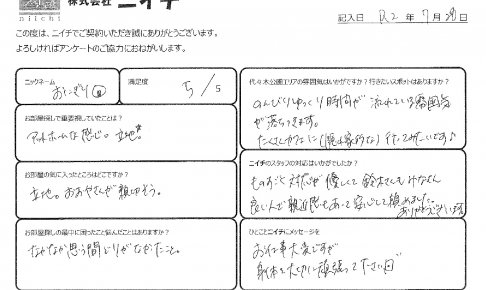 株式会社 ニイチ
niichi
記入日 R2年7月28日
この度は、ニイチでご契約いただき誠にありがとうございます。
よろしければアンケートのご協力におねがいします。
ニックネーム
おにぎり
満足度
5/5
お部屋探しで重要視していたことは?
アットホームな感じ。立地
お部屋の気に入ったところはどこですか?
立地。おおやさんが親切そう。
お部屋探しの最中に困ったこと悩んだことはありますか?
なかなか思う間どりがなかったこと。
代々木公園エリアの雰囲気はいかがですか?行きたいスポットはありますか?
のんびりゆっくり時間が流れている雰囲気
が落ちつきます。
たくさんカフェに行ってみたいです♪
ニイチのスタッフの対応はいかがでしたか?
ものすごく対応が優しくて鈴木さんもみなさん
良い人で親近感もあって安心して頼めました。
ありがとうございます
ひとことニイチにメッセージを
お仕事大変ですが
身体を大切に頑張ってください